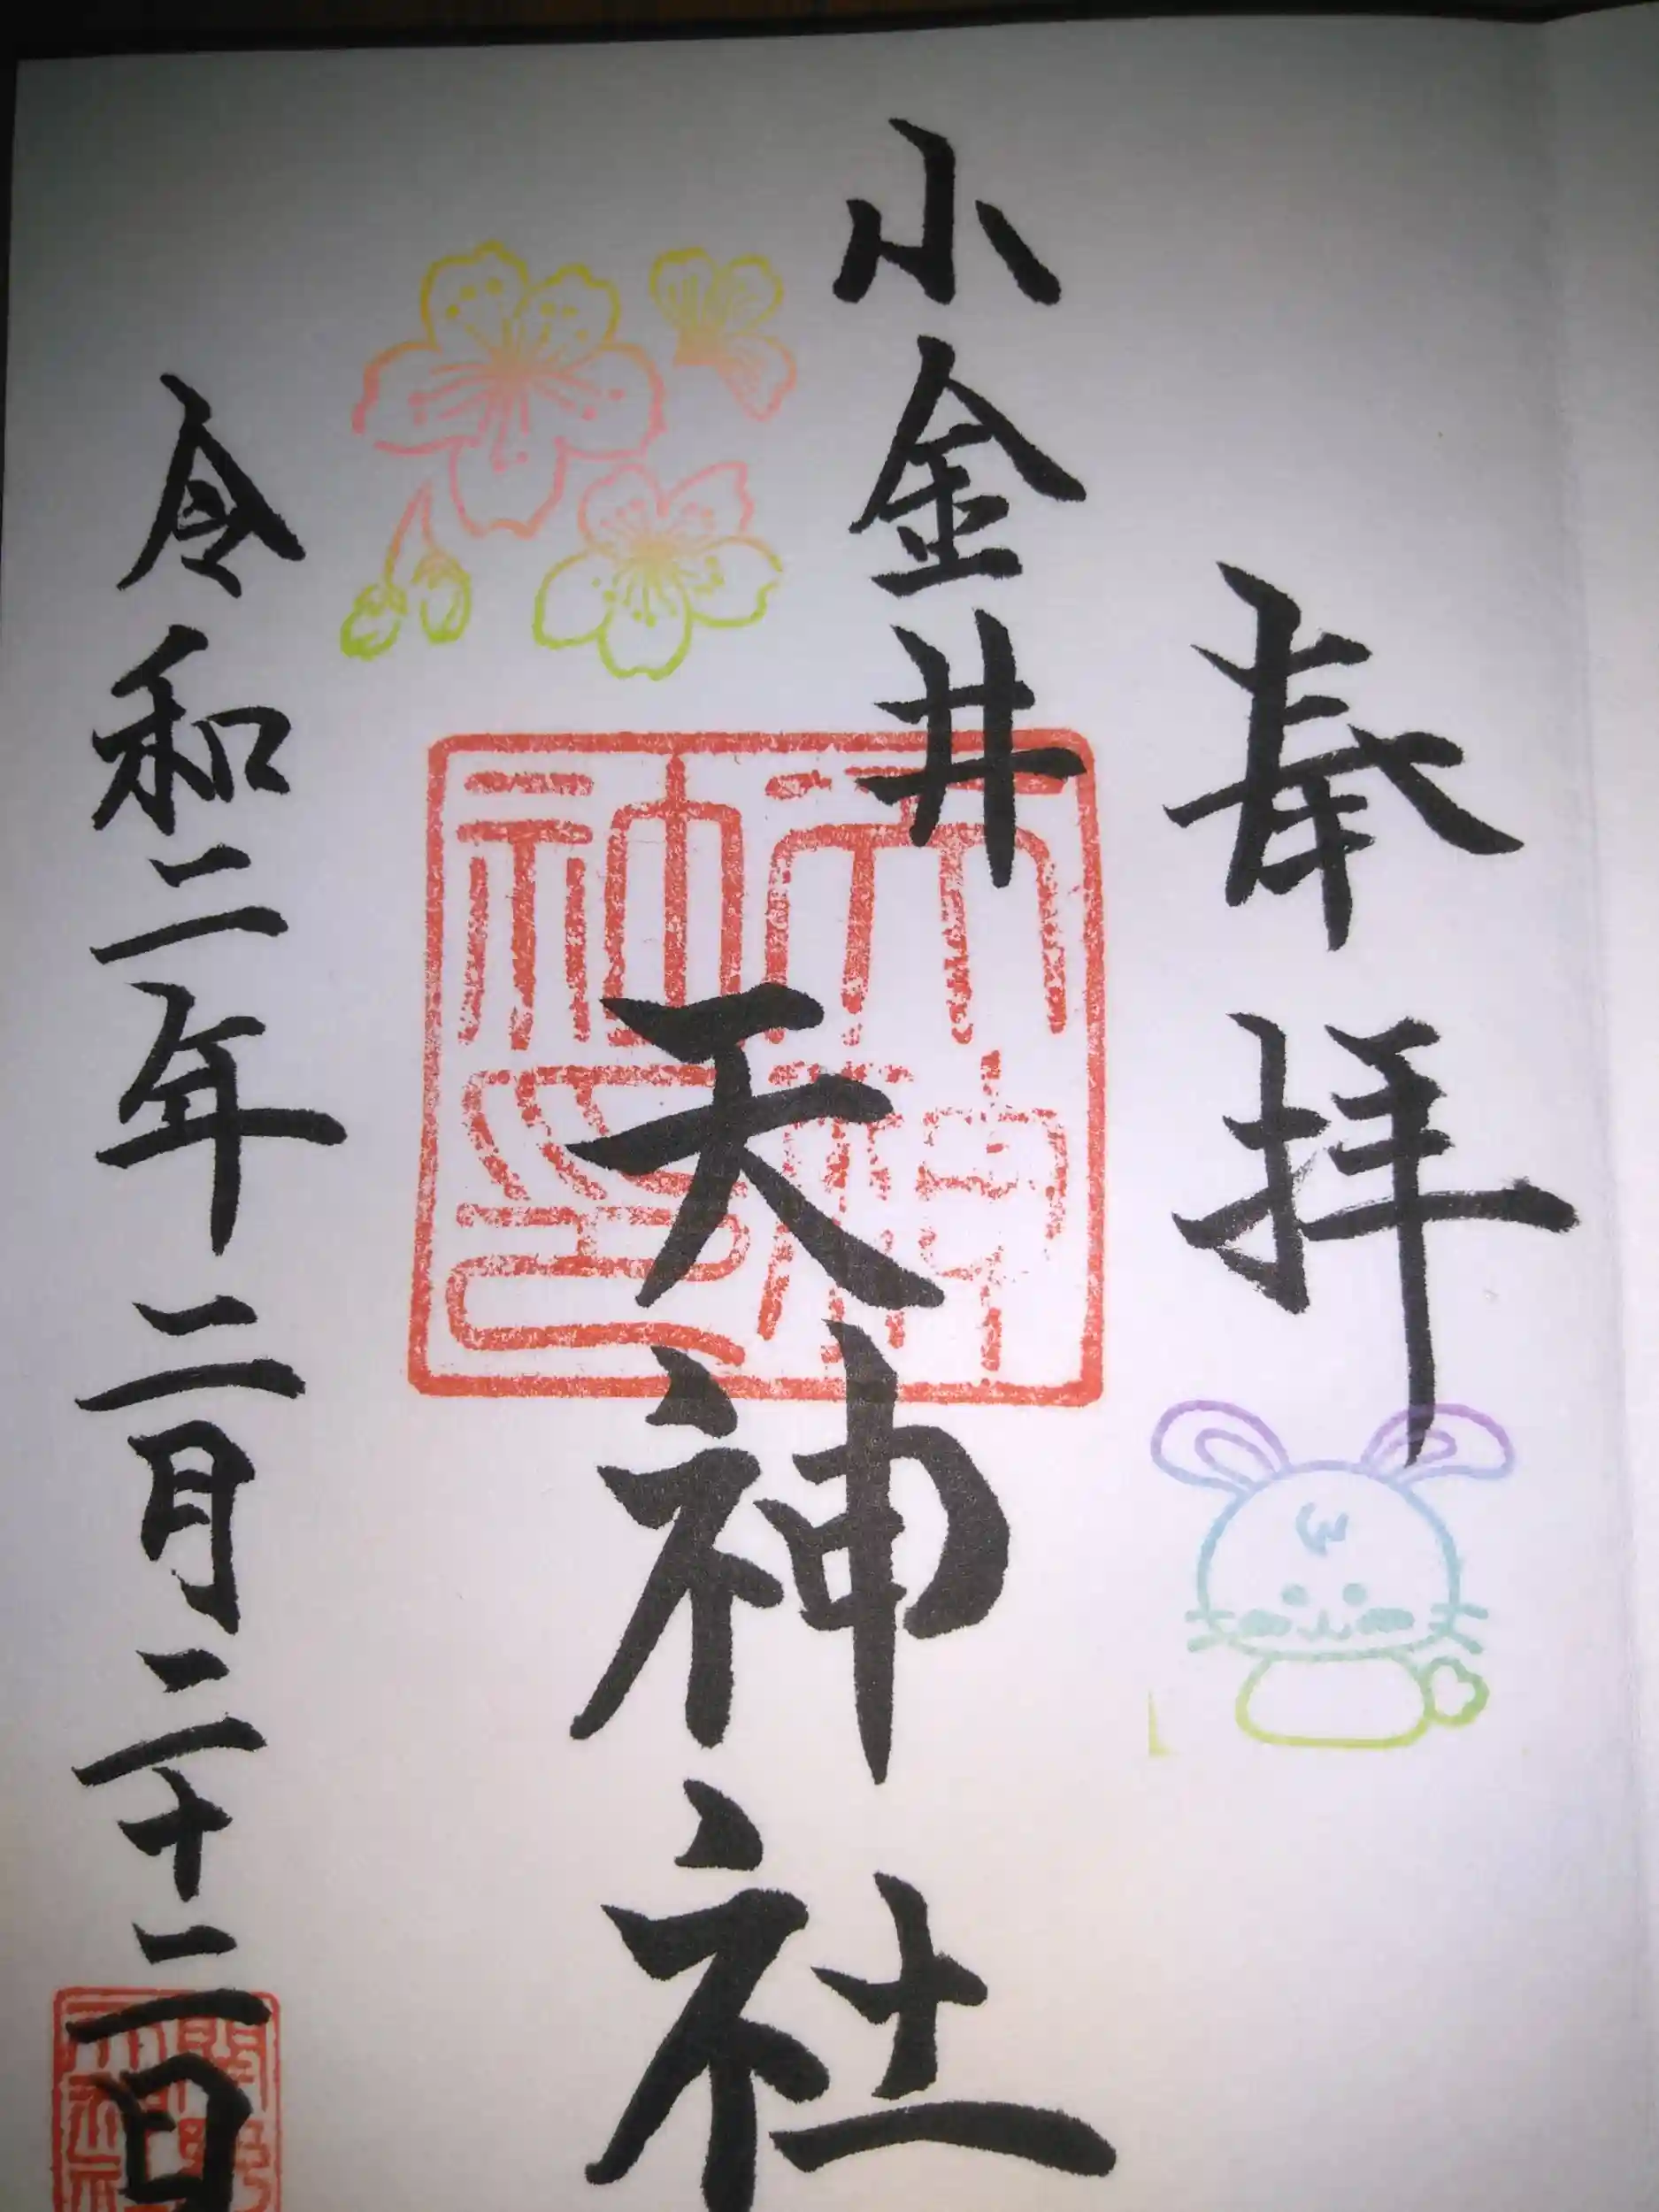 奉拝
小金井
天神社
令和二年二月二十二日
天神社印